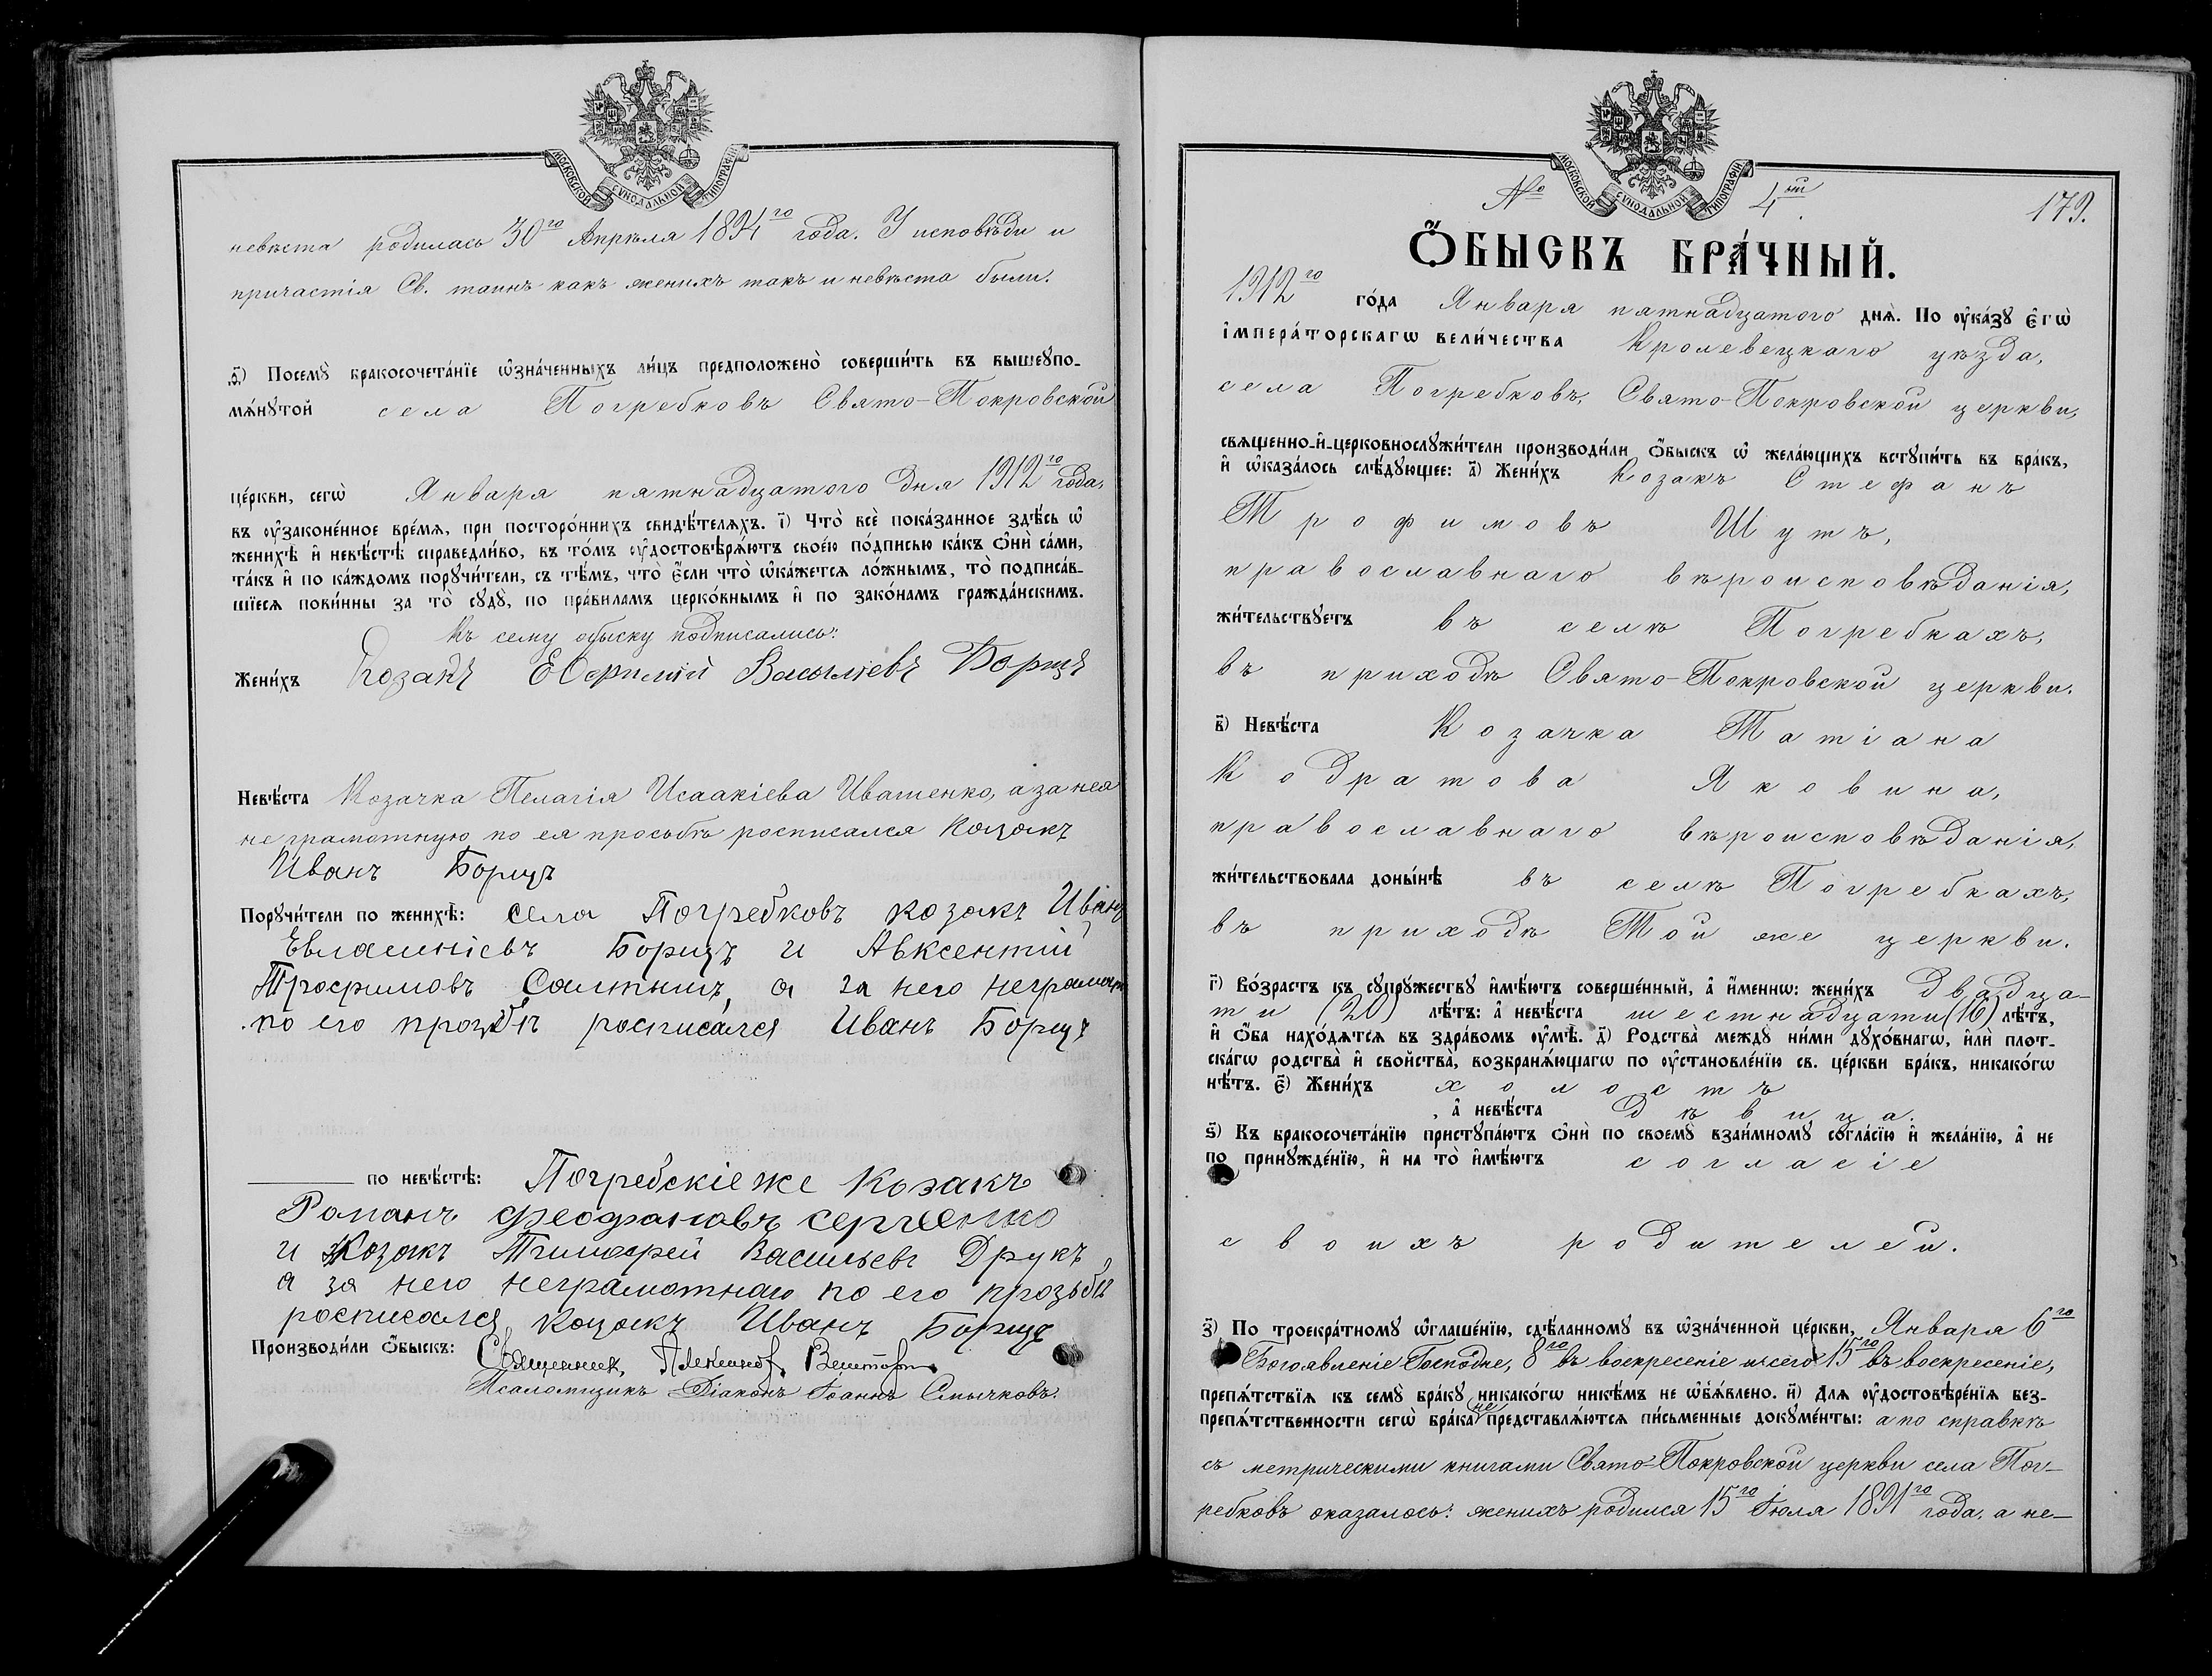 МОСКОВСКОЙ СѴНОДАЛЬНОЙ ТИПОГРАФІИ
невѣста родилась 30го Апрѣля 1894го года. У исповѣди и
причастія Св. таинъ какъ женихъ такъ и невѣста были.
ѳ҃) Посемꙋ̀ бракосочета́нїе ѡ҆зна́ченныхъ ли́цъ предположено̀ соверши́ть въ вышеꙋпо-
мѧ́нꙋтой села Погребковъ Свято-Покровской
це́ркви, сегѡ̀ Января пятнадцатого дня 1912го года,
въ ᲂу҆законе́нное вре́мя, при посторо́ннихъ свидѣ́телѧхъ. і҃) Что̀ всѐ пока́занное здѣ́сь ѡ҆
женихѣ̀ и҆ невѣ́стѣ справедли́во, въ то́мъ ᲂу҆достовѣрѧ́ютъ свое́ю по́дписью ка́къ ѻ҆нѝ са́ми,
та́къ и҆ по ка́ждомъ порꙋчи́тели, съ тѣ́мъ, что̀ є҆́сли что̀ ѡ҆ка́жетсѧ ло́жнымъ, то̀ подписа́в-
шїесѧ пови́нны за то̀ сꙋдꙋ̀, по пра́виламъ церко́внымъ и҆ по зако́намъ гражда́нскимъ.
Къ сему обыску подписались:
Жени́хъ Козакъ Ефримий Василиевъ Борщъ
Невѣ́ста Козачка Пелагія Исаакіева Ивашенко, а за нея
неграмотную по ея просьбѣ росписался Козакъ
Иванъ Борщъ
Порꙋчи́тели по женихѣ̀: Села Погребковъ козакъ Иванъ
Евлампіевъ Борщъ и Авксентій
Трофимовъ Салтыш, а за него неграмотн
по его прозбѣ росписался Иванъ Борщъ
по невѣ́стѣ: Погребскіе же Козакъ
Романъ Феофановъ Сергѣенко
и Козакъ Тимофей Васильевъ Друкъ,
а за него неграмотнаго по его прозьбѣ
росписался козакъ Иванъ Борщъ
Производи́ли ѻ҆́быскъ: Священник
Псаломщикъ Діаконъ Іоаннъ Смычковъ.
МОСКОВСКОЙ СѴНОДАЛЬНОЙ ТИПОГРАФІИ
№ 4й 179.
Ѻ҆́БЫСКЪ БРА́ЧНЫЙ.
1912го го́да Января пятнадцатого днѧ̀. По ᲂу҆ка́зꙋ є҆гѡ̀
і҆мпера́торскагѡ вели́чества Кролевецкаго уѣзда,
села Погребковъ, Свято-Покровской церкви,
свѧщенно-и҆-церковнослꙋжи́тели производи́ли ѻ҆́быскъ ѡ҆ жела́ющихъ встꙋпи́ть въ бра́къ,
и҆ ѡ҆каза́лось слѣ́дꙋющее: а҃) Жени́хъ Козакъ Стефанъ
Трофимовъ Шутъ,
православнаго вѣроисповѣданія,
жи́тельствꙋетъ въ селѣ Погребкахъ,
въ приходѣ Свято-Покровской церкви.
в҃) Невѣ́ста Козачка Татіана
Кодратова Яковина,
православнаго вѣроисповѣданія,
жи́тельствовала доны́нѣ въ селѣ Погребкахъ,
въ приходѣ Той же церкви.
г҃) Во́зрастъ къ сꙋпрꙋ́жествꙋ и҆мѣ́ютъ соверше́нный, а҆ и҆́меннѡ: жени́хъ двадца-
ти (20) лѣ́тъ: а҆ невѣ́ста шестнадцати (16) лѣ́тъ,
и҆ ѻ҆́ба нахо́дѧтсѧ въ здра́вомъ ᲂу҆мѣ̀. д҃) Родства̀ междꙋ̀ ни́ми дꙋхо́внагѡ, и҆лѝ плот-
ска́гѡ родства̀ и҆ сво́йства̀, возбранѧ́ющагѡ по ᲂу҆становле́нїю св. це́ркви бра́къ, никако́гѡ
нѣ́тъ. є҃) Жени́хъ холостъ
, а҆ невѣ́ста дѣвица.
ѕ҃) Къ бракосочета́нїю пристꙋпа́ютъ ѻ҆нѝ по своемꙋ̀ взаи́мномꙋ согла́сїю и҆ жела́нїю, а҆ не
по принꙋжде́нїю, и҆ на то̀ и҆мѣ́ютъ согласіе
своихъ родителей.
з҃) По троекра́тномꙋ ѡ҆глаше́нїю, сдѣ́ланномꙋ въ ѡ҆зна́ченной це́ркви, Января 6го
Богоявленіе Господне, 8го въ воскресеніе и сего 15го въ воскресеніе,
препѧ́тствїѧ къ семꙋ̀ бра́кꙋ никако́гѡ никѣ́мъ не ѡ҆б̾ѧ́влено. и҃) Для ᲂу҆достовѣре́нїѧ без-
препѧ́тственности сегѡ̀ бра́ка не представлѧ́ютсѧ пи́сьменные докꙋме́нты: а по справкѣ
съ метрическими книгами Свято-Покровской церкви села Пог-
ребковъ оказалось: женихъ родился 15го Іюля 1891го года, а не-